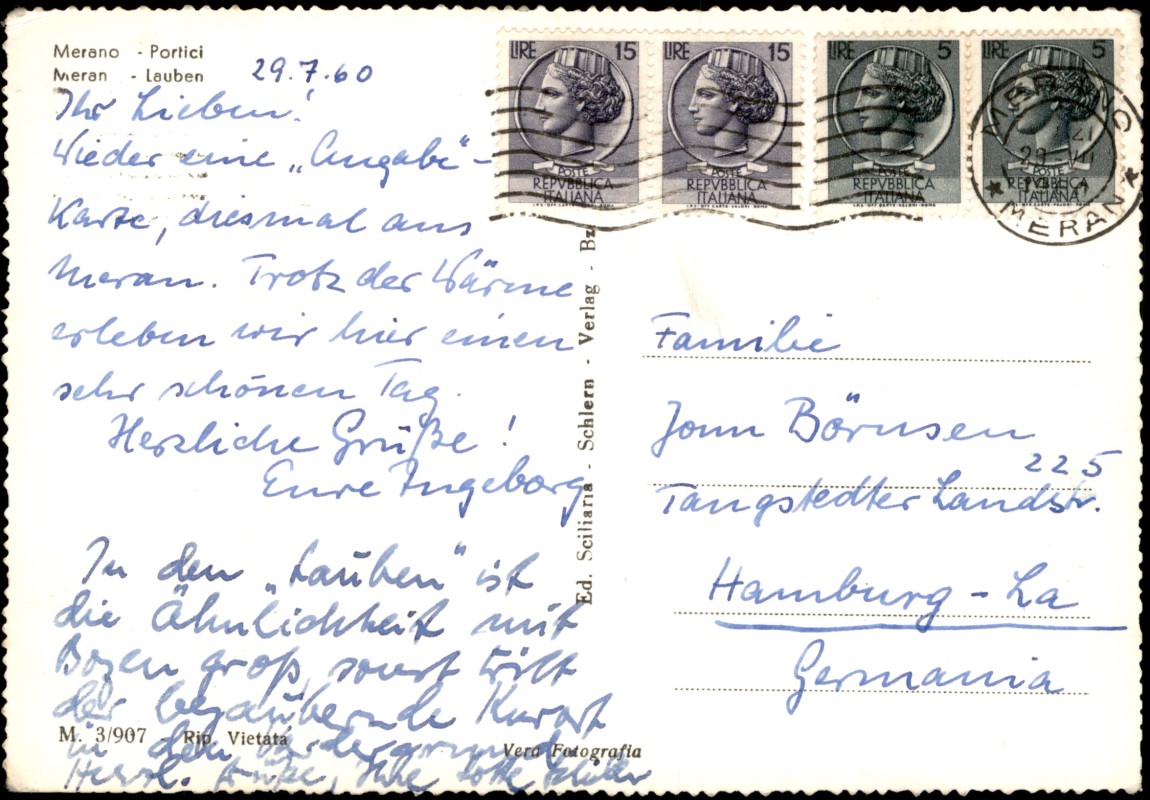 Merano - Portici
Meran - Lauben
29.7.60
Ihr Lieben!
Wieder eine „Angabe"-
Karte, diesmal aus
Meran. Trotz der Wärme
erleben wir hier einen
sehr schönen Tag.
Herzliche Grüße!
Eure Ingeborg
In den „Lauben" ist
die Ähnlichkeit mit
Bozen groß, sonst tritt
der bezaubernde Kurort
in den Vordergrund
Herzl. Grüße, Ihre Lotte
M. 3/907 - Rip. Vietata
Vera Fotografia
Ed. Sciliaria - Schlern - Verlag - Bz
LIRE 15
POSTE
REPVBBLICA
ITALIANA
LIRE 15
POSTE
REPVBBLICA
ITALIANA
LIRE 5
POSTE
REPVBBLICA
ITALIANA
LIRE 5
POSTE
REPVBBLICA
ITALIANA
MERANO
MERAN
Familie
Jonn Börnsen
225
Tangstedter Landstr.
Hamburg - La
Germania